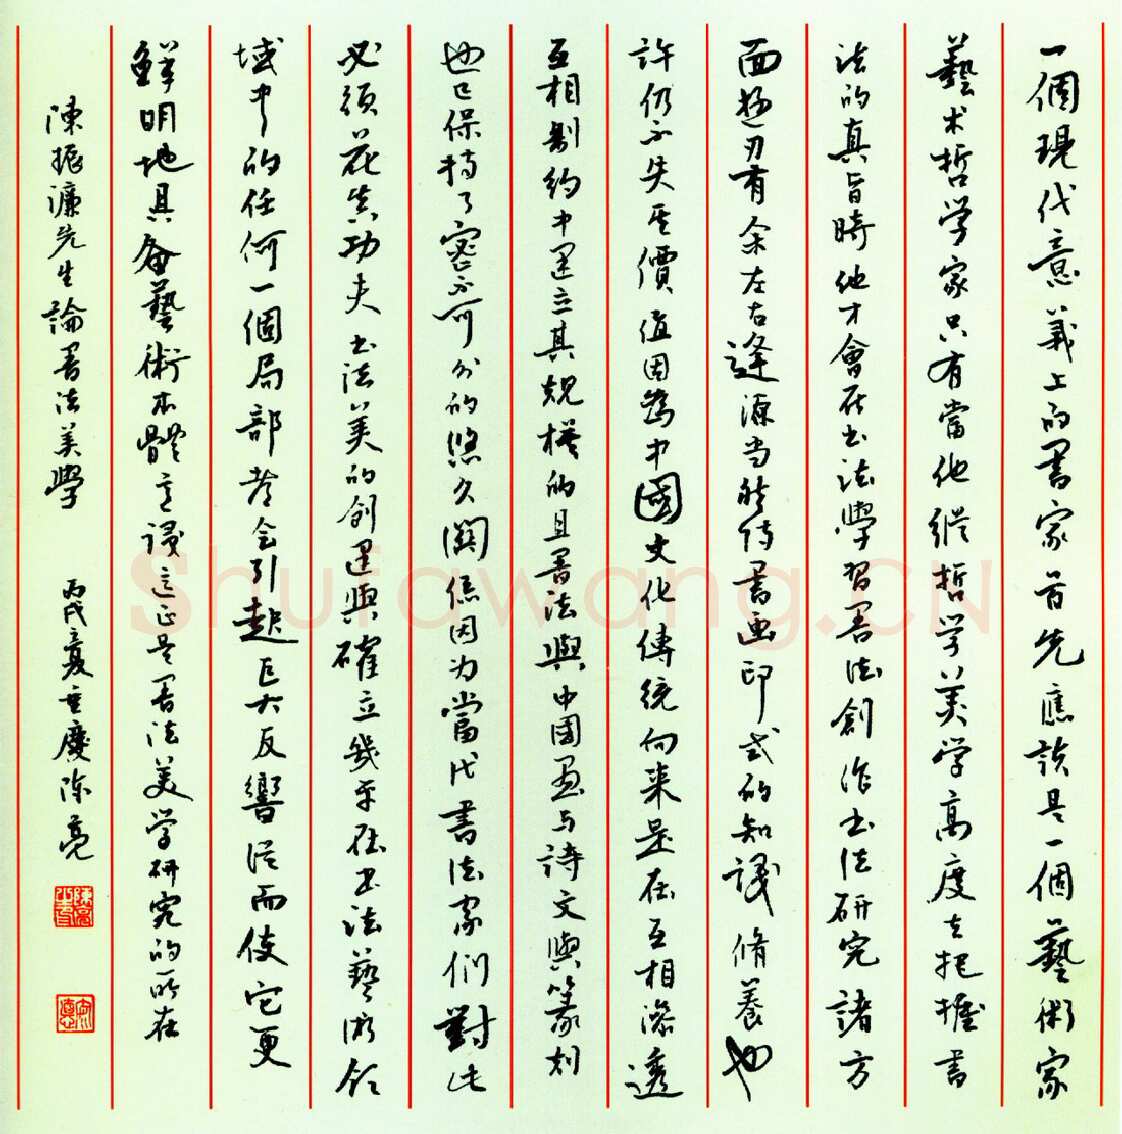 一個現代意義上的書家首先應該是一個藝術家
藝术哲学家只有當他從哲学美学高度去把握書
法的真旨時他才會在书法學習書法創作书法研究諸方
面遊刃有余左右逢源当然诗書画印式的知識脩養也
許仍不失其價值因為中國文化傳统向来是在互相滲透
互相制約中建立其規模的且書法與中國画与詩文與篆刻
也已保持了密不可分的悠久関係因为當代書法家们對此
必须花真功夫书法美的創建與確立幾乎在书法藝術领
域中的任何一個局部都会引起巨大反響從而使它更
鮮明地具备藝術本體意識這正是書法美学研究的所在
陳振濂先生論書法美學 丙戌夏重慶陈亮
Shufawang.CN